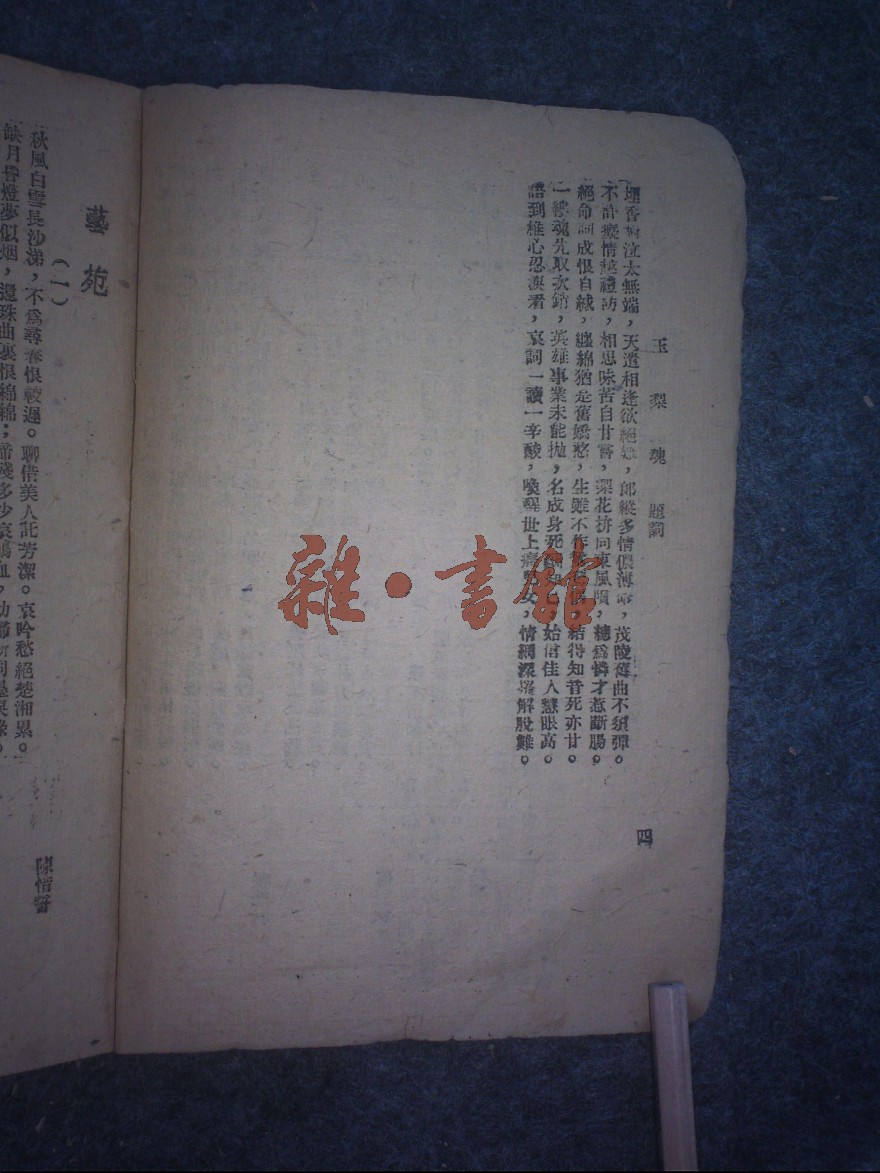 玉梨魂 題詞
四
埋香泣太無端，天遣相逢欲絕難，郎縱多情儂薄命，茂陵舊曲不須彈。
不許癡情越禮防，相思味苦自甘嘗，梨花拚向東風隕，總爲憐才惹斷腸。
絕命詞成恨自緘，纏綿猶是舊嬌憨，生雖不作，結得知音死亦甘。
一縷魂先取次銷，英雄事業未能拋，名成身死，始信佳人慧眼高。
語到維心忍淚看，哀詞一讀一辛酸，喚醒世上癡女，情網深羅解脫難。
雜·書館
藝苑
（一）
陳惜誓
秋風白雪長沙涕，不爲尋春恨較遲。聊借美人託芳潔。哀吟愁絕楚湘纍。
缺月昏燈夢似烟，還珠曲裏恨綿綿；